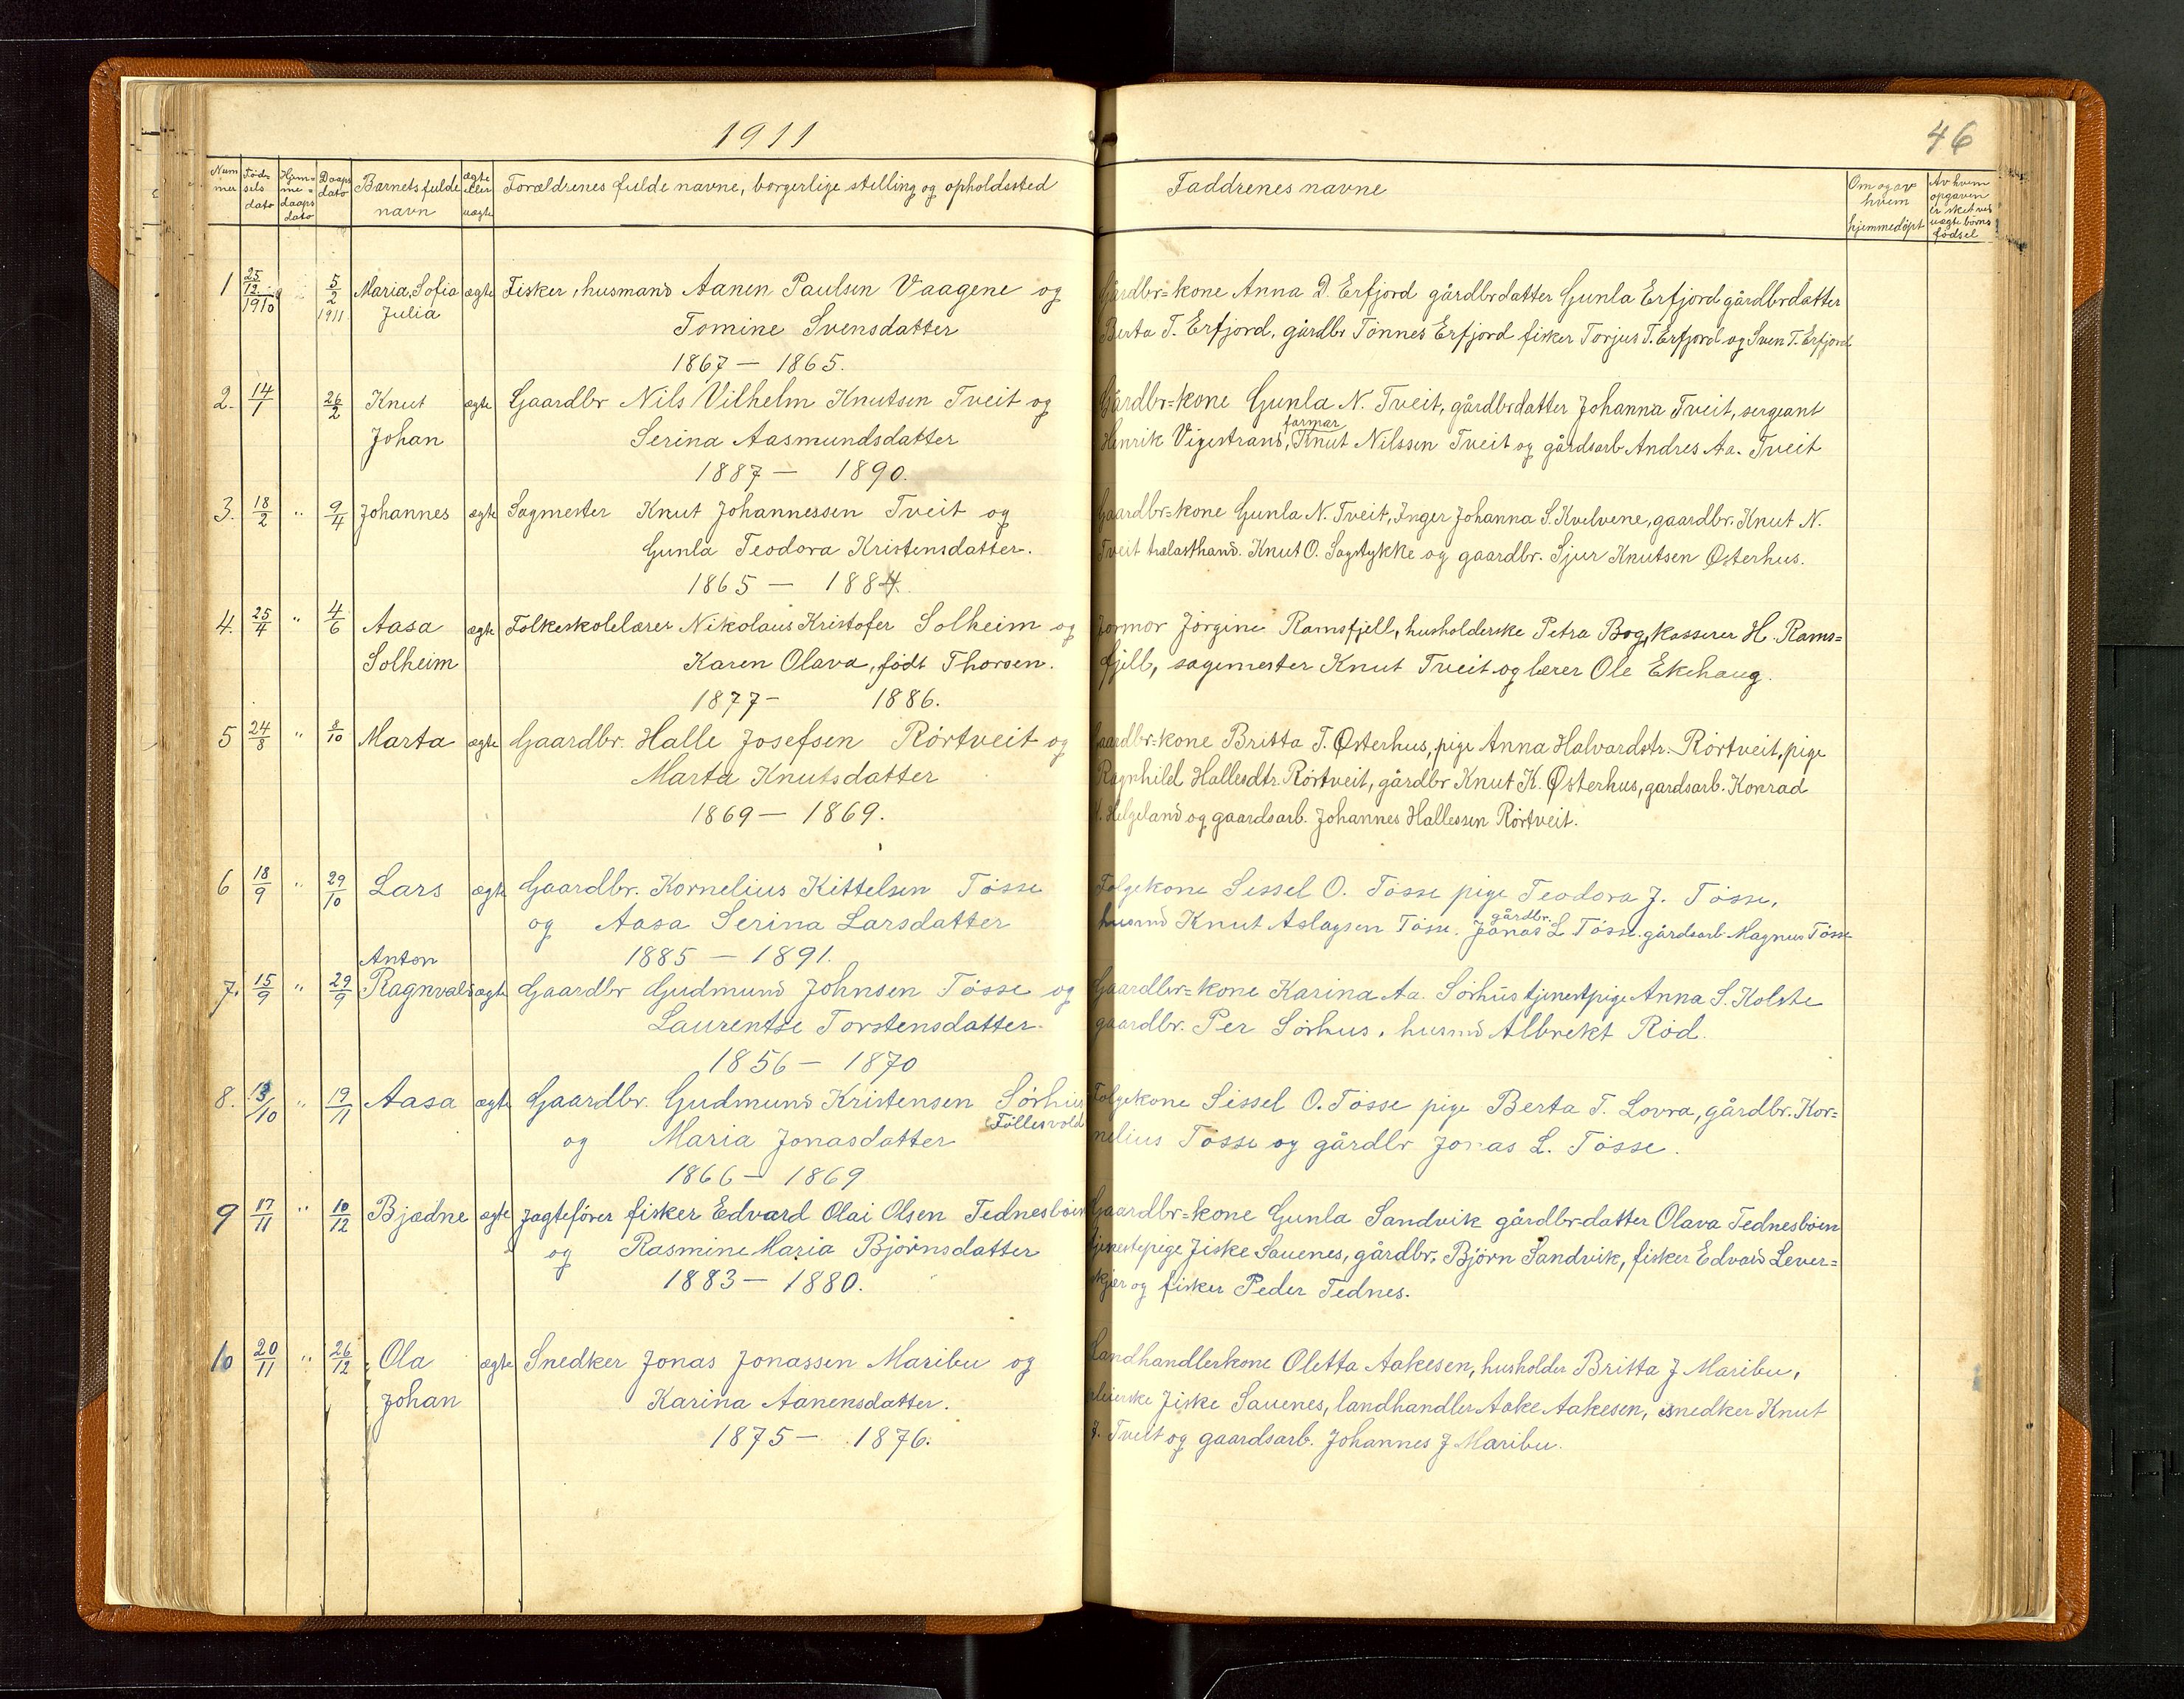 1911
46
Num mer
Föd- sels dato
Hjem- me- daaps dato
Daaps dato
Barnets fulde navn
ægte eller uægte
Forældrenes fulde navne, borgerlige stilling og opholdssted
Faddrenes navne
Om og av hvem hjemmedöpt
Av hvem opgaven er sket ved uægte börns födsel
1 25/12 1910 5/2 1911 Maria, Sofia ægte Fisker, husmand Aanen Paulsen Vaagene og
Julia Tomine Svensdatter
1867 — 1865.
Gårdbr=kone Anna D. Erfjord gårdbrdatter Gunla Erfjord gårdbrdatter
Berta T. Erfjord, gårdbr Tönnes Erfjord fisker Torjus T. Erfjord og Sven T. Erfjord
2. 14/1 26/2 Knut ægte Gaardbr Nils Vilhelm Knutsen Tveit og
Johan Serina Aasmundsdatter
1887 — 1890.
Gårdbr=kone Gunla N. Tveit, gårdbrdatter Johanna Tveit, sergeant
farmar
Henrik Vigestrand, Knut Nilssen Tveit og gårdsarb Andres Aa. Tveit
3. 18/2 " 9/4 Johannes ægte Sagmester Knut Johannessen Tveit og
Gunla Teodora Kristensdatter.
1865 — 1884.
Gaardbr=kone Gunla N. Tveit, Inger Johanna S. Kvelvene, gaardbr. Knut N.
Tveit trælasthand. Knut O. Sagstykke og gaardbr. Sjur Knutsen Østerhus.
4. 25/4 " 4/6 Aasa ægte Folkeskolelærer Nikolaus Kristofer Solheim og
Solheim Karen Olava, födt Thorsen.
1877 — 1886.
Jormor Jörgine Ramsfjell, husholderske Petra Bog, kasserer H. Rams=
fjell, sagemester Knut Tveit og lærer Ole Ekehaug.
5 24/8 " 8/10 Marta ægte Gaardbr. Halle Josefsen Rörtveit og
Marta Knutsdatter
1869 — 1869.
Gaardbr-kone Britta T. Østerhus, pige Anna Halvardstr. Rörtveit, pige
Ragnhild Hallesdtr. Rörtveit, gårdbr Knut K. Østerhus, gardsarb. Konrad
K. Helgeland og gaardsarb. Johannes Hallessen Rörtveit.
6 18/9 " 29/10 Lars ægte Gaardbr. Kornelius Kittelsen Tösse
og Aasa Serina Larsdatter
1885 — 1891.
Folgekone Sissel O. Tösse pige Teodora J. Tösse,
gårdbr.
husmd Knut Aslagsen Tösse. Jonas L Tösse. gårdsarb Magnus Tösse
Anton
7. 15/9 " 29/9 Ragnvald ægte Gaardbr Gudmund Johnsen Tösse og
Laurentse Torstensdatter.
1856 — 1870
Gaardbr=kone Karina Aa. Sörhus tjenestpige Anna S. Kolste
gaardbr. Per Sörhus, husmd Albrekt Röd.
8. 13/10 " 19/11 Aasa ægte Gaardbr. Gudmund Kristensen Sörhus
Föllesvold
og Maria Jonasdatter
1866 — 1869
Folgekone Sissel O. Tösse pige Berta T. Lovra, gårdbr. Kor=
nelius Tösse og gårdbr Jonas L. Tösse.
9 17/11 " 10/12 Bjædne ægte Jagtefører fisker Edvard Olai Olsen Tednesböien
og Rasmine Maria Björnsdatter
1883 — 1880.
Gaardbr=kone Gunla Sandvik gårdbr-datter Olava Tednesböen
tjenestepige Jiske Sauenes, gårdbr. Björn Sandvik, fisker Edvard Lever=
kjær og fisker Peder Tednes.
10 20/11 " 26/12 Ola ægte Snedker Jonas Jonassen Maribu og
Johan Karina Aanensdatter.
1875 — 1876.
Landhandlerkone Oletta Aakesen, husholder Britta J Maribu,
pleierske Jiske Sauenes, landhandler Aake Aakesen, snedker Knut
J. Tveit og gaardsarb. Johannes J Maribu.